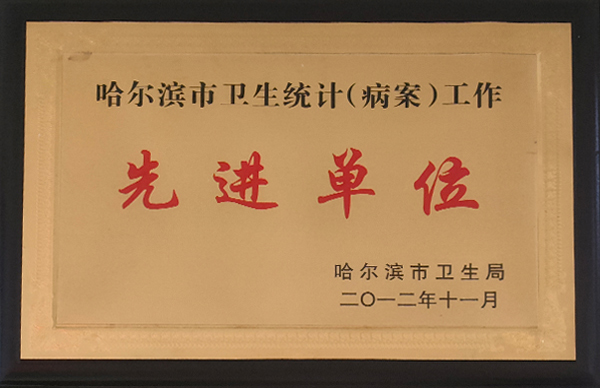 哈尔滨市卫生统计（病案）工作
先进单位
哈尔滨市卫生局
二〇一二年十一月